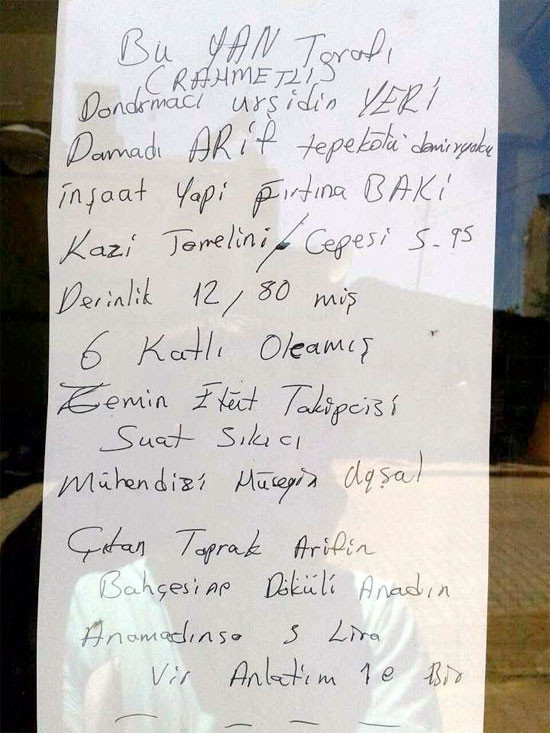 Bu YAN Tgrafı
(RAHMETLİ)
Dondrmacı urşidin YERİ
Damadı ARİF tepeköta demiryolu
inşaat Yapi Fırtına BAKİ
Kazi Temelini / Cepesi 5-95
Derinlik 12/80 miş
6 Katlı Olcamış
Zemin Etüt Takipcisi
Suat Sıkıcı
Mühendizi Hüseyin Uşal
Çıtan Toprak Arifin
Bahçesine Döküli Anadın
Anamadınsa 5 Lira
Vir Anlatim 1e Bir